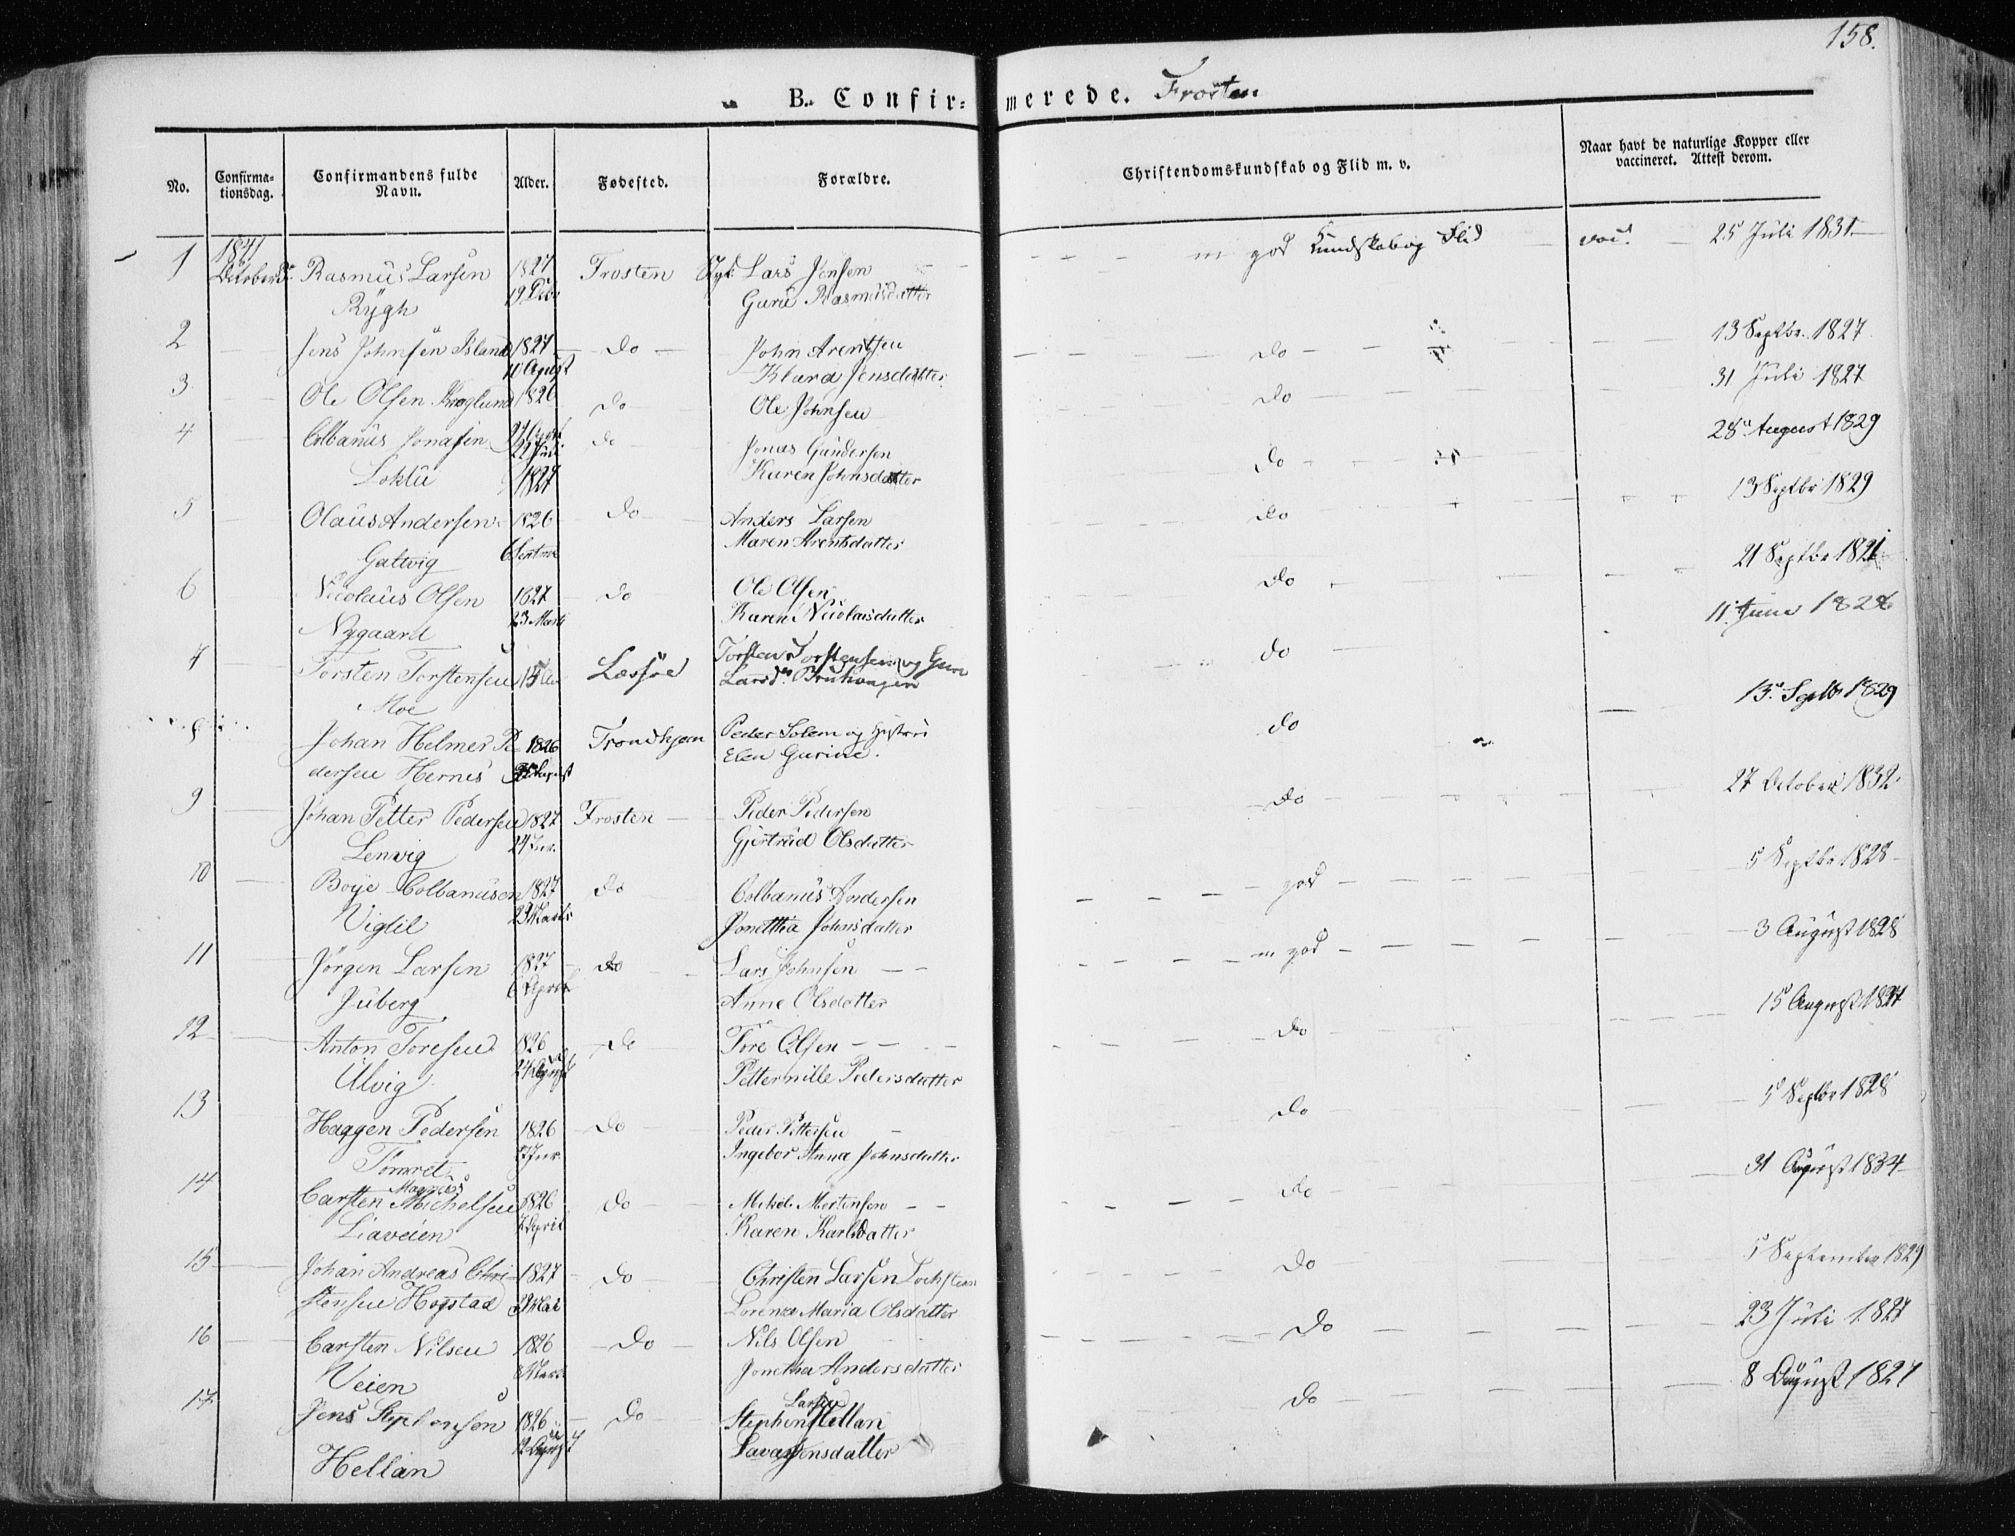 158.
B. Confirmerede. Frosten
No.
Confirmationsdag.
Confirmandens fulde Navn.
Alder.
Fødested.
Forældre.
Christendomskundskab og Flid m. v.
Naar havt de naturlige Kopper eller vaccineret. Attest derom.
1 1841 October Rasmus Larsen 1827 Frosten Lars Jensen m god Kundskab og Flid vac. 25 Juli 1831
Rygh 19 Guru Rasmusdatter
2 Jens Johnsen Island 1827 do John Arentsen do 13 Septbr. 1827
Klara Jensdatter
3 Ole Olsen 1826 do Ole Johnsen do 31 Juli 1827
4 Colbanus Jonasen do Jonas Gundersen do 28 August 1829
Loktu 1827 Karen Johnsdatter
5 Olaus Andersen 1826 do Anders Larsen do 13 Septbr 1829
Galtvig 6 Maren Arentsdatter
6 Nicolaus Olsen 1827 do Ole Olsen do 21 Septbr
Nygaard 23 Karen Nicolaisdatter
Torsten Torstensen Lessøe Torsten Torstensen og Guru do 11. Juni
Moe Larsd.
Johan Helmer Pe 1826 Trondhjem Peder Solem og do 13. Septbr 1829
dersen Hernes Elen Gurine.
9 Johan Petter Pedersen 1827 Frosten Peder Pedersen do 27 October 1832
Lenvig Gjertrud Olsdatter
10 Boye Colbanusen 1827 do Colbanus Andersen god 5 Septbr 1828
Vigtil Jonethia Johnsdatter
11 Jørgen Larsen 1827 do Lars Johnsen m god 3 August 1828
Juberg 6 Anne Olsdatter
12 Anton Toresen 1826 do Tore Olsen do 15 August
Ulvig 24 August Pettermille Pedersdatter
13 Haggen Pedersen 1826 do Peder Pettersen do 5 Septbr 1828
Ingebor Anna Johnsdatter
14 Carsten Magnus Michelsen 1826 do Mikel Mortensen do 31 August 1834
Liaveien April Karen Karlsdatter
15 Johan Andreas Chri 1827 do Christen Larsen do 5 September 1829
stensen Hogstad Mai Lorenza Maria Olsdatter
16 Carsten Nilsen 1826 do Nils Olsen do 23 Juli 1827
Veien Jonetha Andersdatter
17 Jens Stephensen 1826 do Stephen Larsen Hellan do 8 August 1827
Hellan 12 August Jensdatter